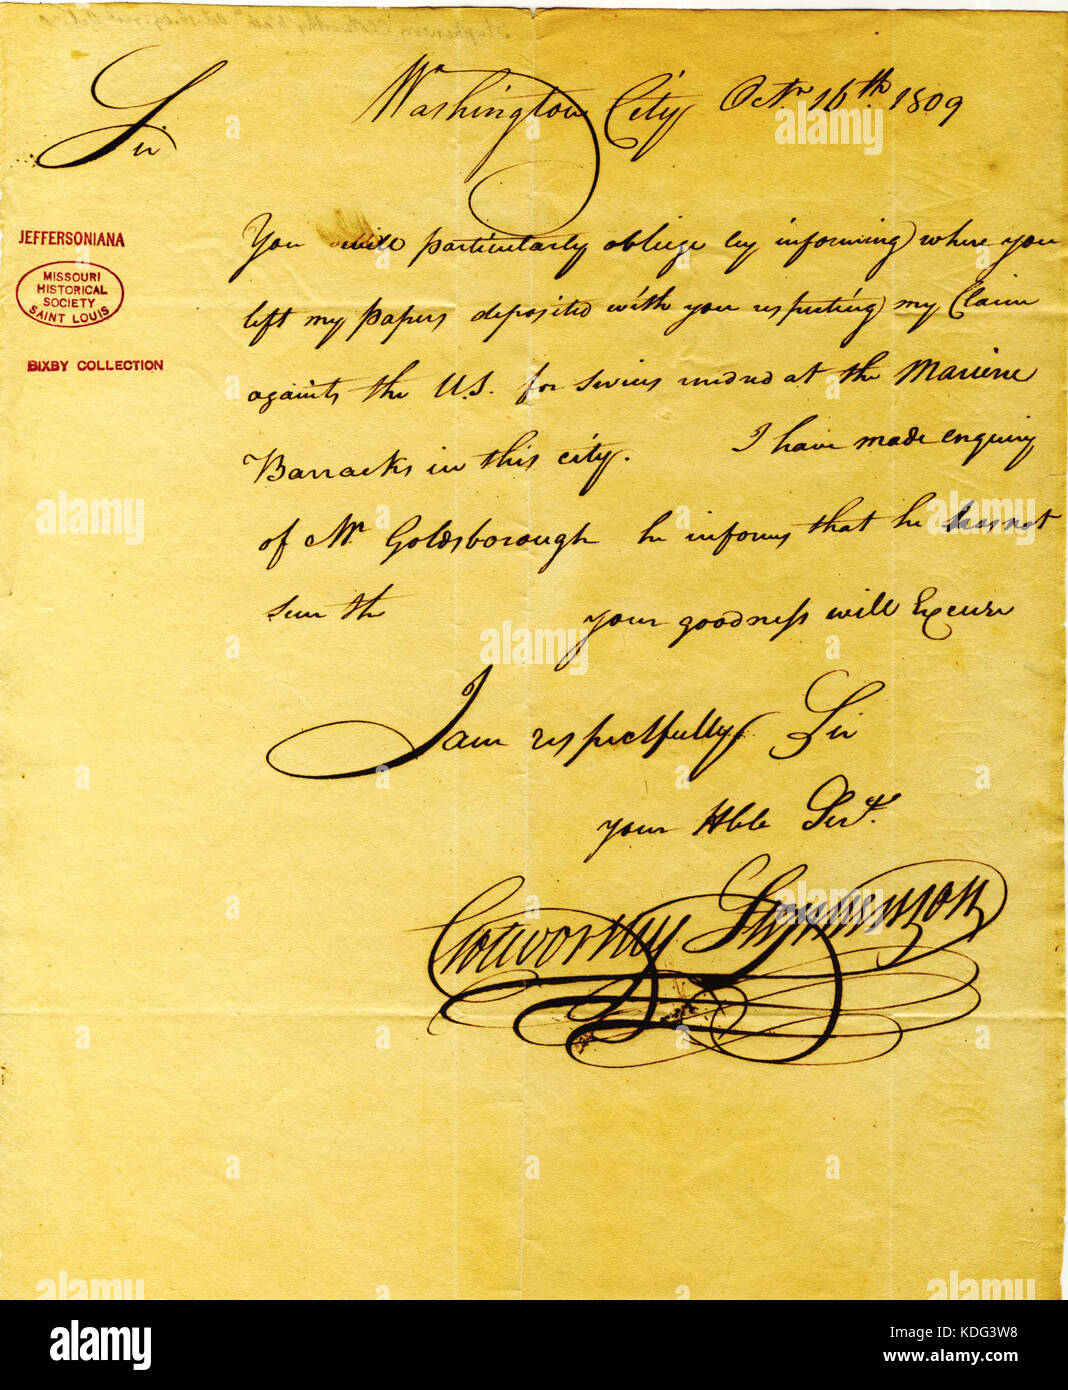 Washington City Octr 16th. 1809
Sir
JEFFERSONIANA
MISSOURI
HISTORICAL
SOCIETY
SAINT LOUIS
BIXBY COLLECTION
You will particularly obliege by informing where you
left my papers deposited with you respecting my Claim
against the U.S. for servies rendred at the Mariene
Barracks in this city. I have made enquiry
of Mr Goldsborough he informs that he has not
seen th your goodness will Excuse
I am respectfully Sir
your Hble Servt.
Clotworthy Stephenson
alamy
a
alamy
Image ID: KDG3W8
www.alamy.com